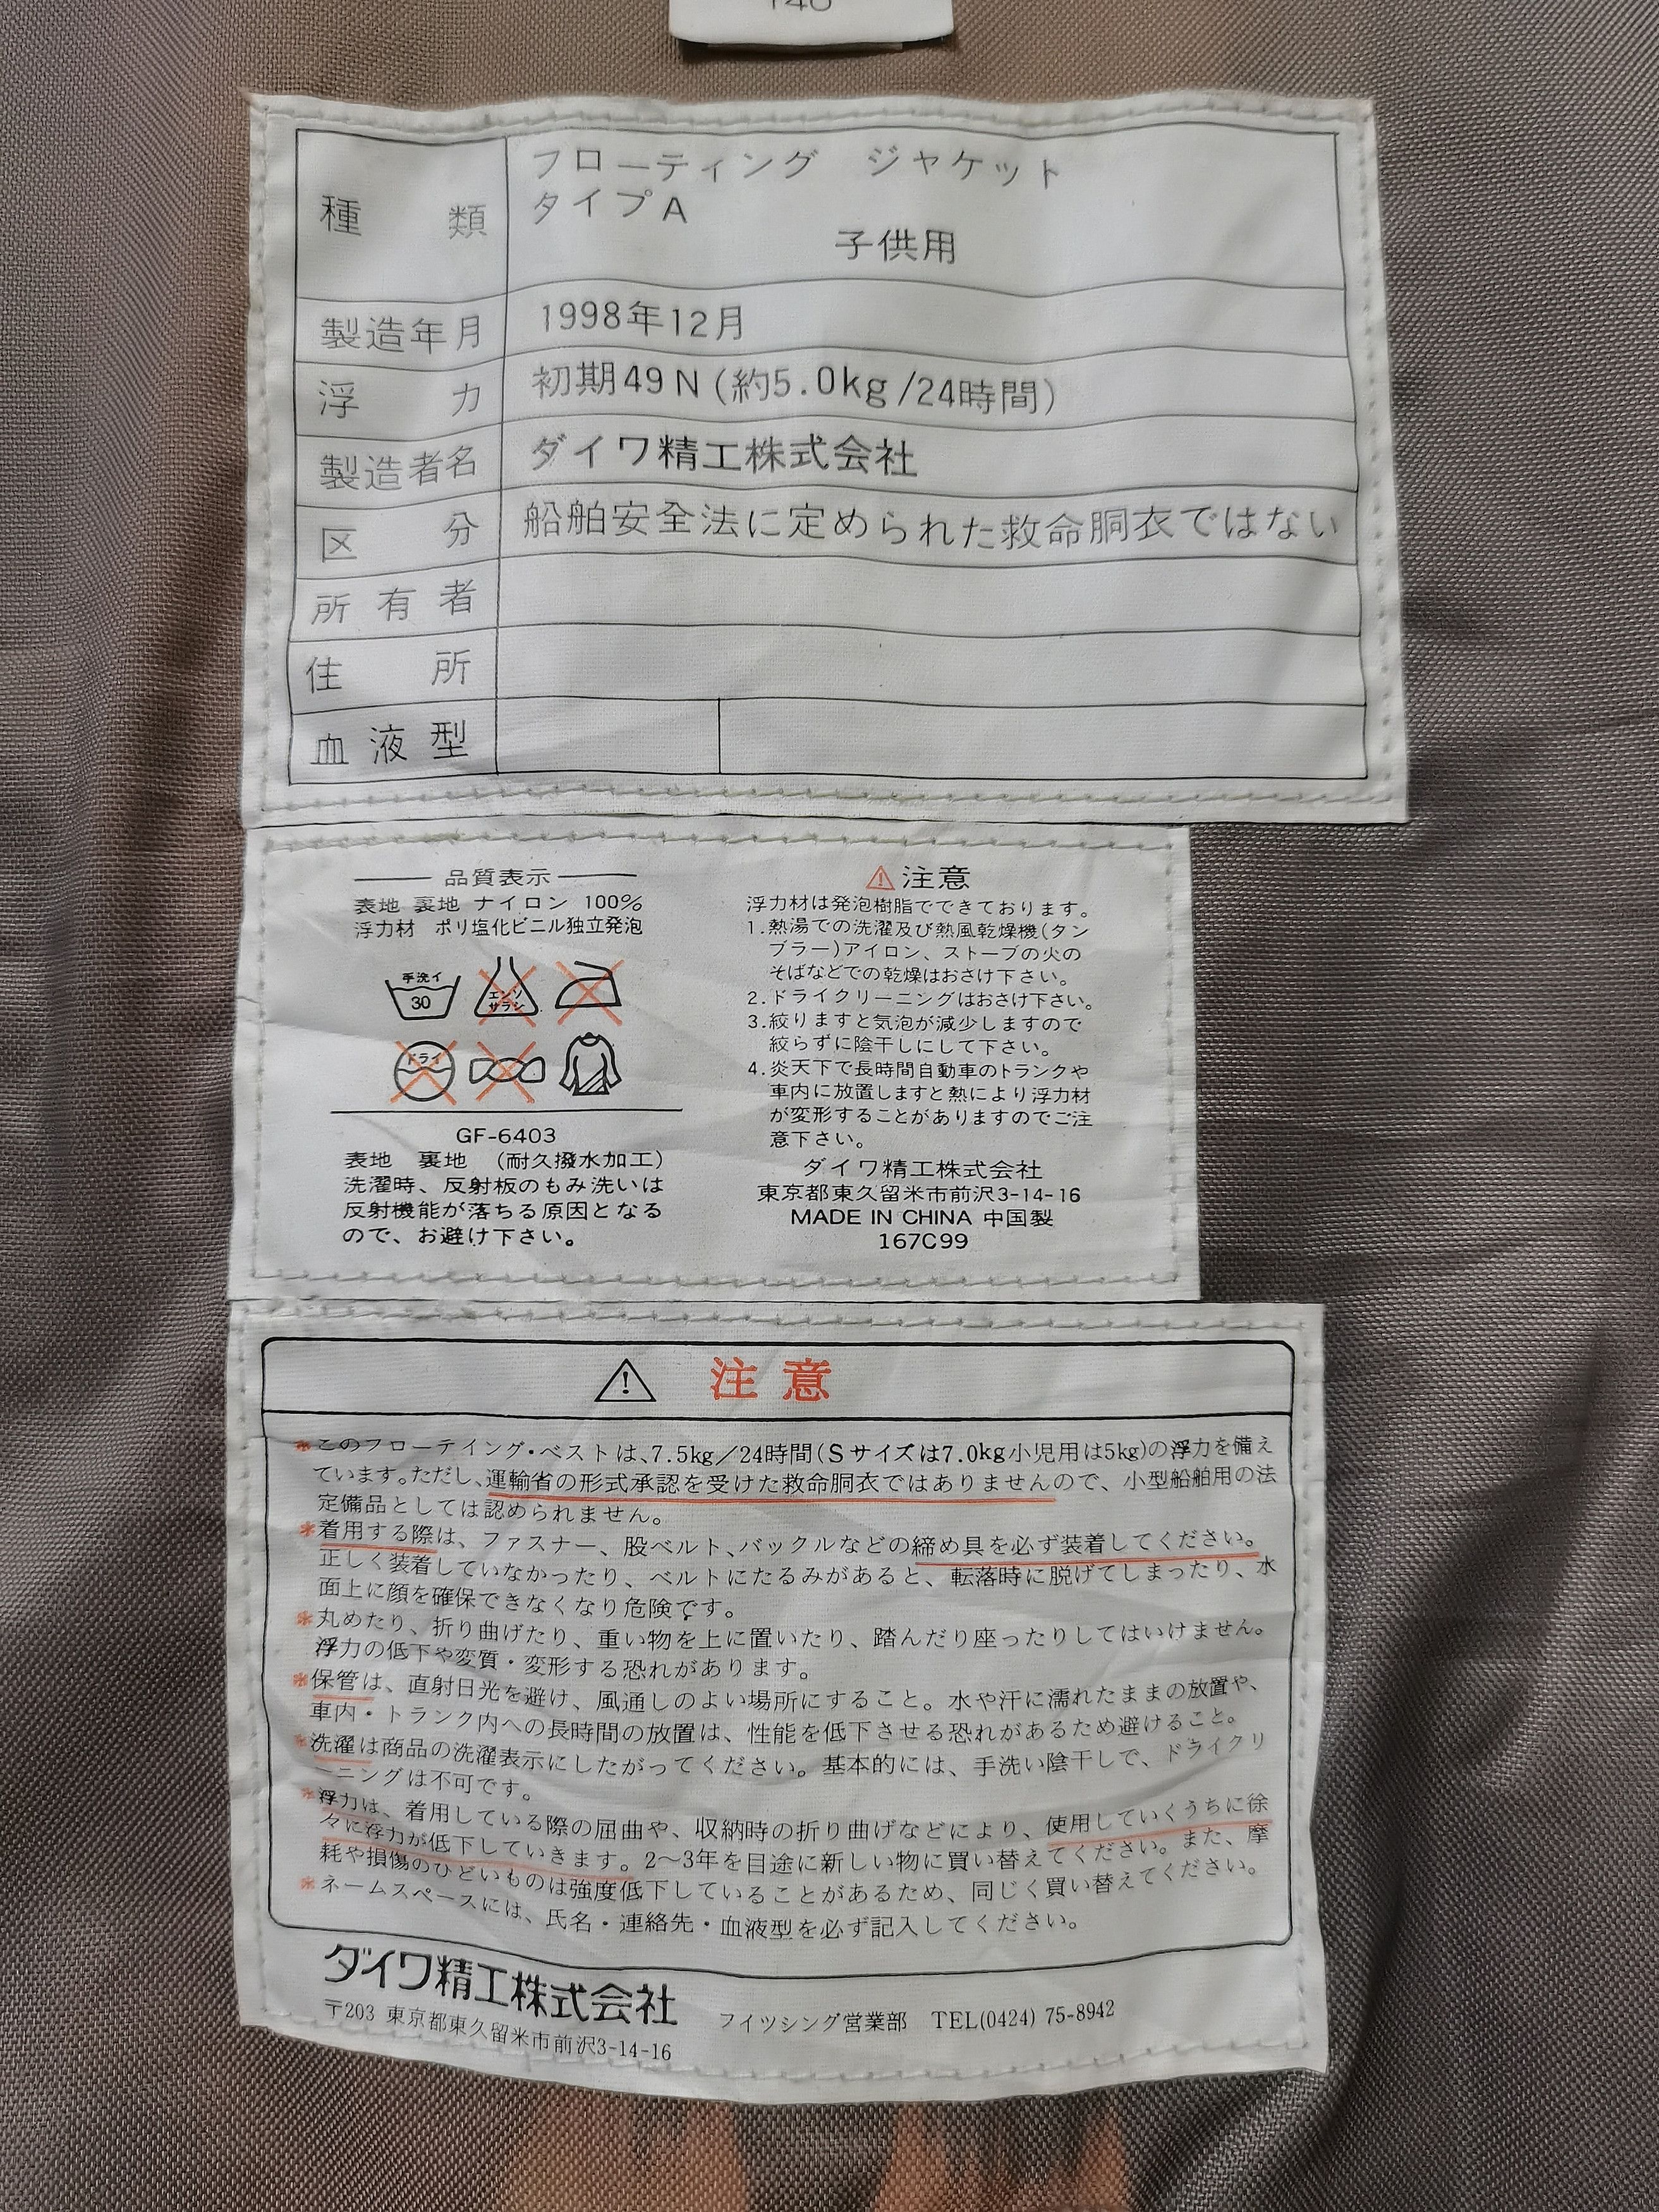 140
種類 フローティング ジャケット
タイプA
子供用
製造年月 1998年12月
浮力 初期49N(約5.0kg/24時間)
製造者名 ダイワ精工株式会社
区分 船舶安全法に定められた救命胴衣ではない
所有者
住所
血液型
品質表示
表地 裏地 ナイロン 100%
浮力材 ポリ塩化ビニル独立発泡
手洗イ
30
エンソ
サラシ
ドライ
GF-6403
表地 裏地 (耐久撥水加工)
洗濯時、反射板のもみ洗いは
反射機能が落ちる原因となる
ので、お避け下さい。
注意
浮力材は発泡樹脂でできております。
1.熱湯での洗濯及び熱風乾燥機(タン
ブラー)アイロン、ストーブの火の
そばなどでの乾燥はおさけ下さい。
2.ドライクリーニングはおさけ下さい。
3.絞りますと気泡が減少しますので
絞らずに陰干しにして下さい。
4.炎天下で長時間自動車のトランクや
車内に放置しますと熱により浮力材
が変形することがありますのでご注
意下さい。
ダイワ精工株式会社
東京都東久留米市前沢3-14-16
MADE IN CHINA 中国製
167C99
注意
*このフローテイング・ベストは、7.5kg/24時間(Sサイズは7.0kg小児用は5kg)の浮力を備え
ています。ただし、運輸省の形式承認を受けた救命胴衣ではありませんので、小型船舶用の法
定備品としては認められません。
*着用する際は、ファスナー、股ベルト、バックルなどの締め具を必ず装着してください。
正しく装着していなかったり、ベルトにたるみがあると、転落時に脱げてしまったり、水
面上に顔を確保できなくなり危険です。
*丸めたり、折り曲げたり、重い物を上に置いたり、踏んだり座ったりしてはいけません。
浮力の低下や変質・変形する恐れがあります。
*保管は、直射日光を避け、風通しのよい場所にすること。水や汗に濡れたままの放置や、
車内・トランク内への長時間の放置は、性能を低下させる恐れがあるため避けること。
*洗濯は商品の洗濯表示にしたがってください。基本的には、手洗い陰干しで、ドライクリ
ーニングは不可です。
*浮力は、着用している際の屈曲や、収納時の折り曲げなどにより、使用していくうちに徐
々に浮力が低下していきます。2〜3年を目途に新しい物に買い替えてください。また、摩
耗や損傷のひどいものは強度低下していることがあるため、同じく買い替えてください。
*ネームスペースには、氏名・連絡先・血液型を必ず記入してください。
ダイワ精工株式会社
〒203 東京都東久留米市前沢3-14-16 フイツシング営業部 TEL(0424) 75-8942